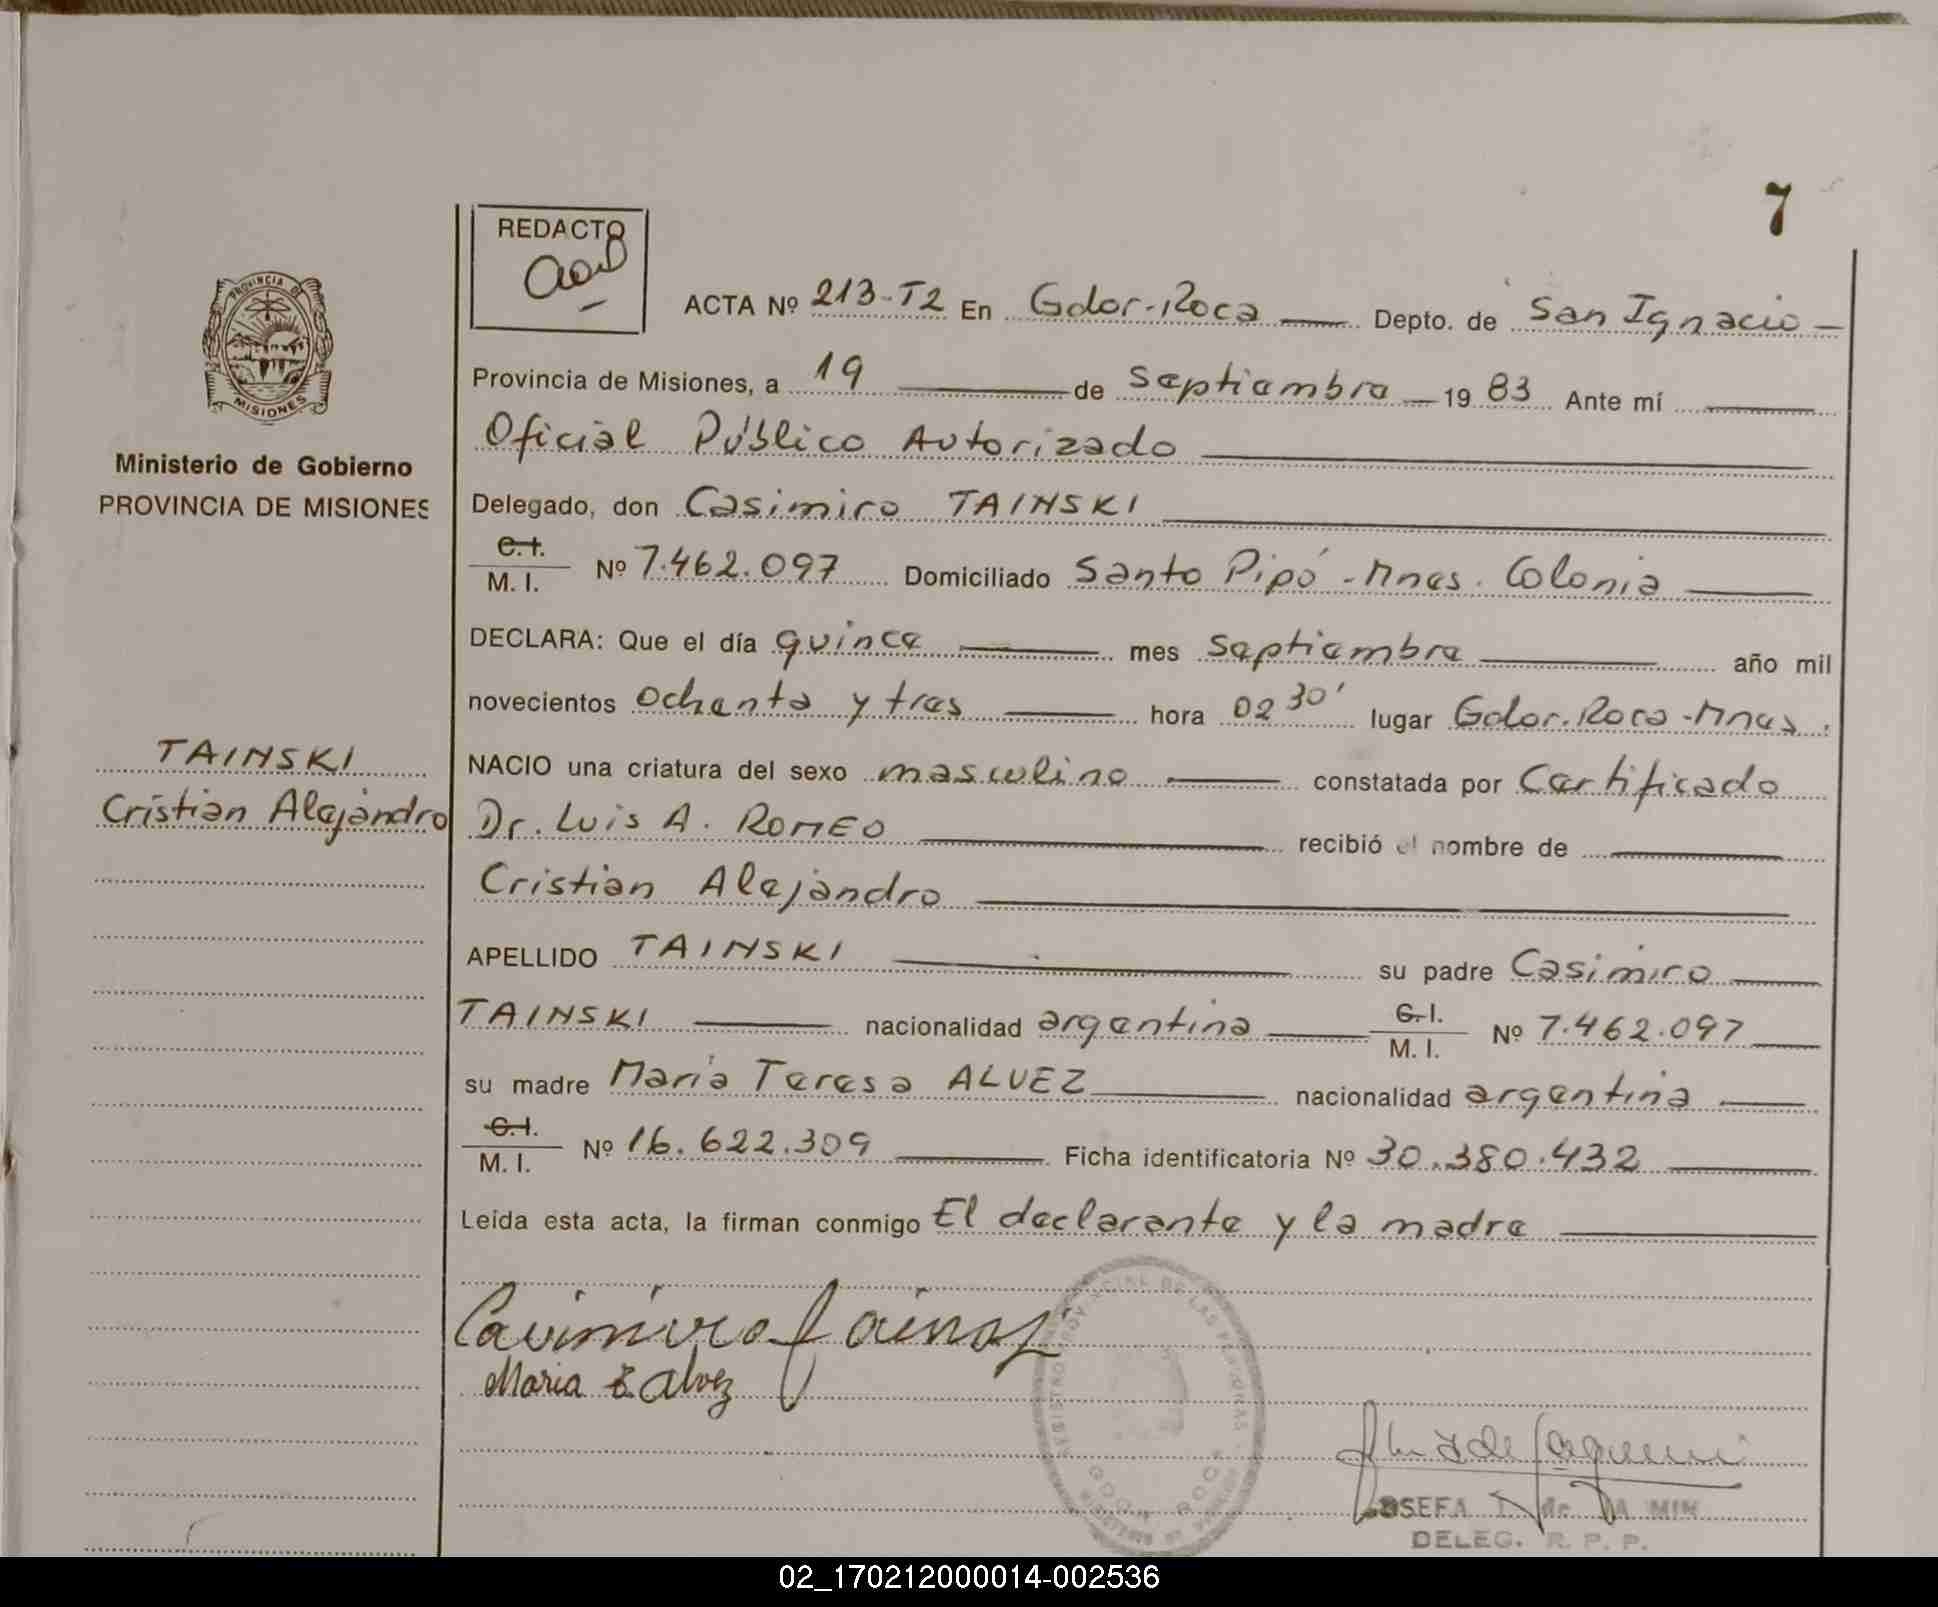 7
REDACTO
ACTA Nº 213-T2 En Gdor-Roca Depto. de San Ignacio
Provincia de Misiones, a 19 de Septiembre 1983 Ante mí
Oficial Público Autorizado
Delegado, don Casimiro TAINSKI
C.I. M.I. Nº 7.462.097 Domiciliado Santo Pipó - Mnes. Colonia
DECLARA: Que el día quince mes Septiembre año mil
novecientos ochenta y tres hora 02 30' lugar Gdor. Roca - Mnes.
NACIO una criatura del sexo masculino constatada por Certificado
Dr. Luis A. ROMEO recibió el nombre de
Cristian Alejandro
APELLIDO TAINSKI su padre Casimiro
TAINSKI nacionalidad argentina C.I. M.I. Nº 7.462.097
su madre Maria Teresa ALVEZ nacionalidad argentina
C.I. M.I. Nº 16.622.309 Ficha identificatoria Nº 30.380.432
Leída esta acta, la firman conmigo El declarante y la madre
Casimiro
Maria T Alvez
DELEG. R. P. P.
PROVINCIA DE
MISIONES
Ministerio de Gobierno
PROVINCIA DE MISIONES
TAINSKI
Cristian Alejandro
02_170212000014-002536